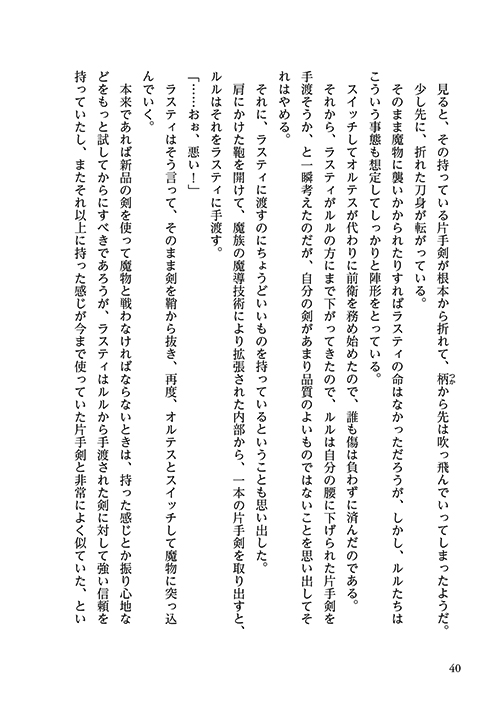 見ると、その持っている片手剣が根本から折れて、柄つかから先は吹っ飛んでいってしまったようだ。
少し先に、折れた刀身が転がっている。
そのまま魔物に襲いかかられたりすればラスティの命はなかっただろうが、しかし、ルルたちは
こういう事態も想定してしっかりと陣形をとっている。
スイッチしてオルテスが代わりに前衛を務め始めたので、誰も傷は負わずに済んだのである。
それから、ラスティがルルの方にまで下がってきたので、ルルは自分の腰に下げられた片手剣を
手渡そうか、と一瞬考えたのだが、自分の剣があまり品質のよいものではないことを思い出してそ
れはやめる。
それに、ラスティに渡すのにちょうどいいものを持っているということも思い出した。
肩にかけた鞄を開けて、魔族の魔導技術により拡張された内部から、一本の片手剣を取り出すと、
ルルはそれをラスティに手渡す。
「……おぉ、悪い！」
ラスティはそう言って、そのまま剣を鞘から抜き、再度、オルテスとスイッチして魔物に突っ込
んでいく。
本来であれば新品の剣を使って魔物と戦わなければならないときは、持った感じとか振り心地な
どをもっと試してからにすべきであろうが、ラスティはルルから手渡された剣に対して強い信頼を
持っていたし、またそれ以上に持った感じが今まで使っていた片手剣と非常によく似ていた、とい
40